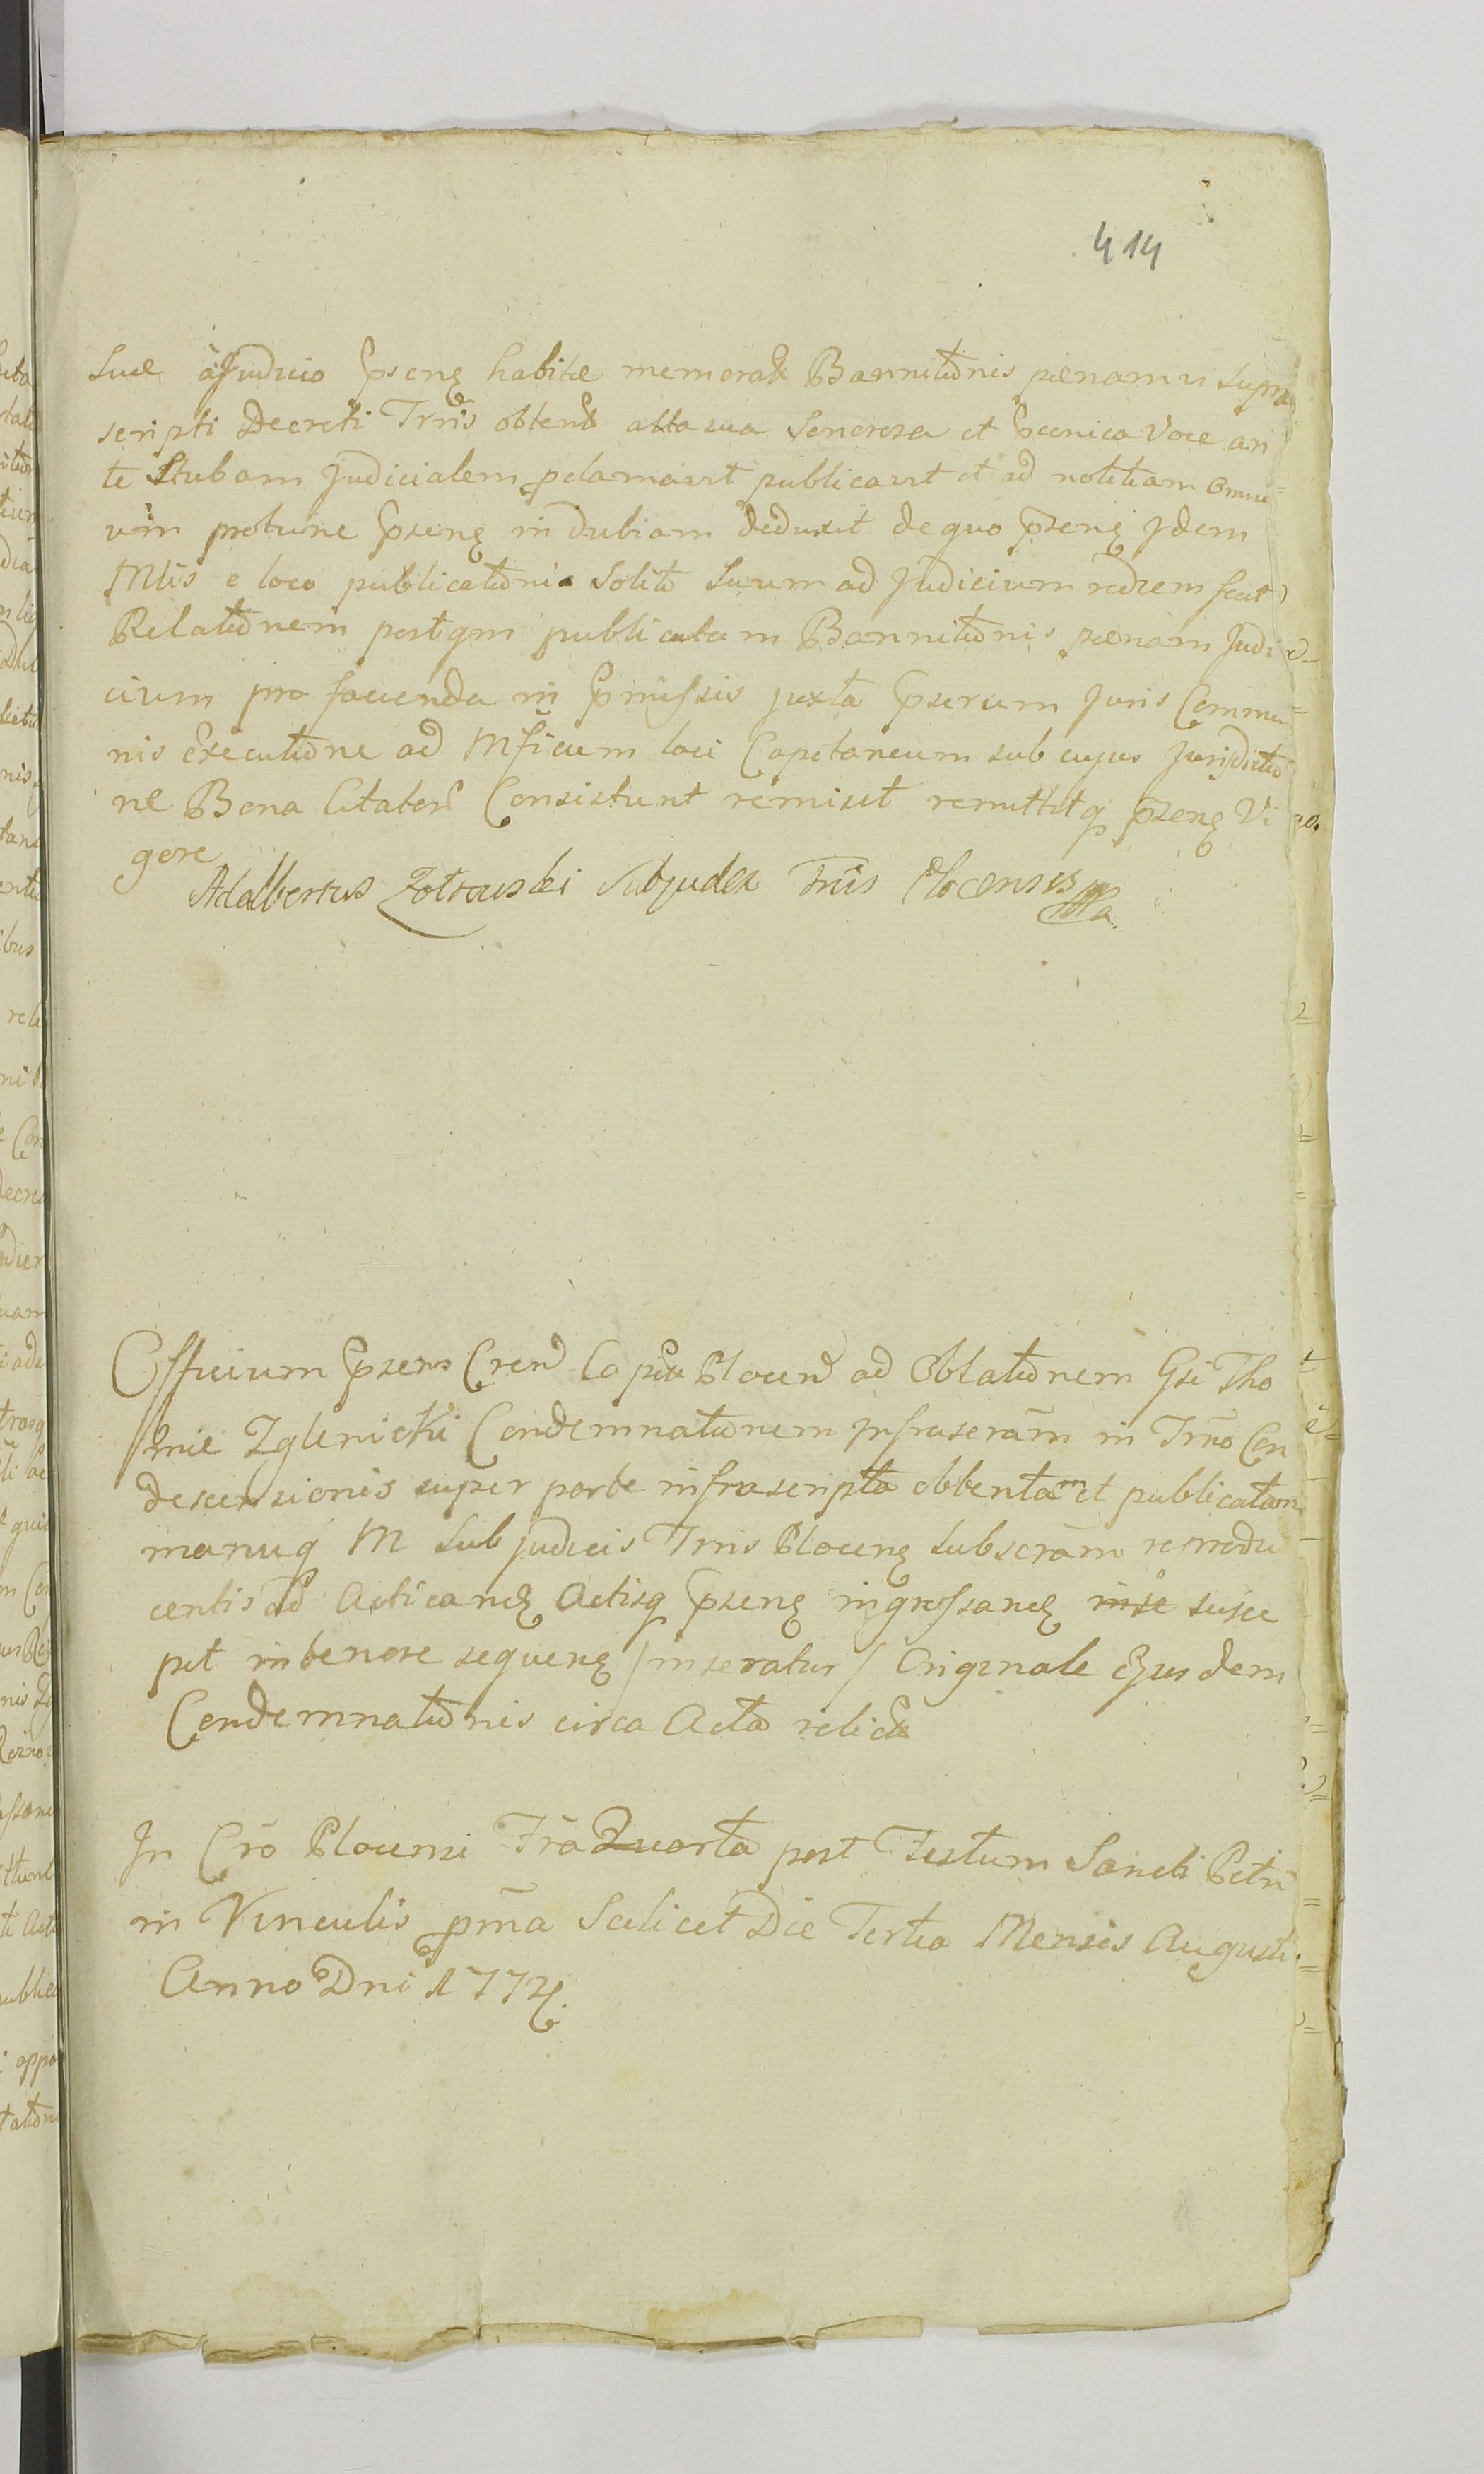 414
suae a Judicio Pseng habitae memoratae Bannitionis paenam vi supra
scripti Decreti Trris obtent alta sua Sonorosa et Praeconica Voce an
te Stubam Judicialem pclamavit publicavit et ad notitiam omni=
um protunc Pseng indubiam deduxit de quo Pzeng Idem
Mlis e loco publicationis Solito Suum ad Judicium rediem fecit
Relationem post qm publicatam Bannitionis paenam Judi
cium pro facienda in Pmissis juxta Pscrum Juris Commu=
nis Executione ad Mficum loci Capitaneum sub cujus Jurisdictio
ne Bona Citator Consistunt remisit remittitq Pzeng Vi
gore
Adalbertus Zołtowski Subjudex Trris Plocensis mpa.
Officium Pzens Cren Capitu Plocen ad Oblationem Gsi Tho
mae Zglenicki Condemnationem Infrascram in Trno Con
descensionis super parte infrascripta obtentam et publicatam
manuq M Subjudicis Trris Ploceng subscram reprodu
centis ad Acticang Actisq Pzeng ingrossang susce
pit in tenore sequeng / inseratur / Originale Ejusdem
Condemnationis circa Acta relicta
In Cro Plocensi Fria Quarta post Festum Sancti Petri
in Vinculis pma Scilicet Die Tertia Mensis Augusti
Anno Dni 1774.